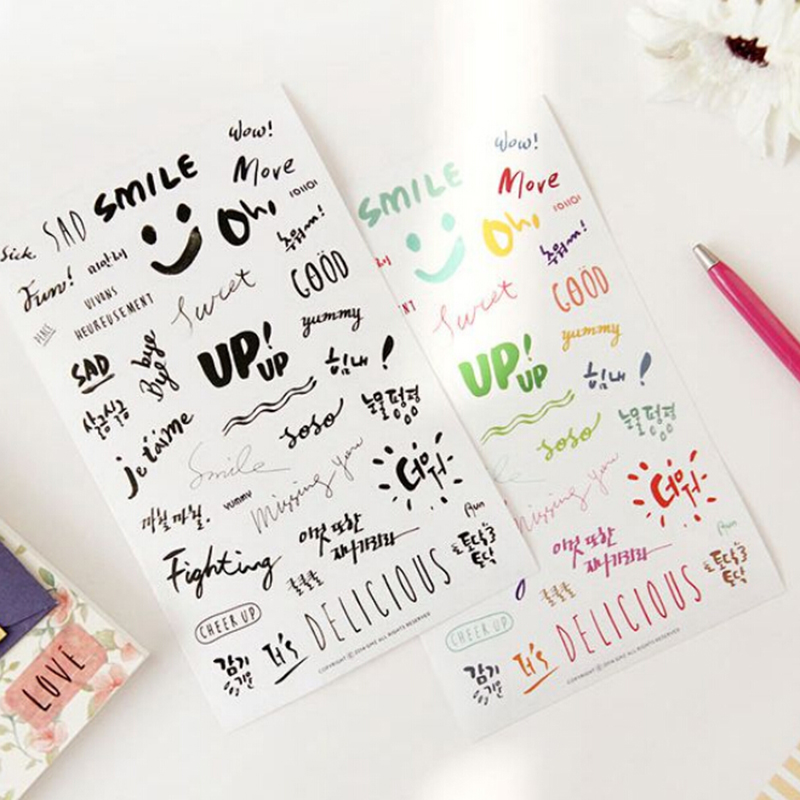 Wow!
More
SMILE
SAD
Sick
Oh,
101101
추워~~!
Fun!
미안해
VIVONS
HEUREUSEMENT
PEACE
Sweet
GOOD
yummy
UP!
UP
힘내!
SAD
bye
Bye
살금살금
je t'aime
soso
눈물 펑펑
Smile
missing you
더워
YUMMY
메롱메롱.
Fighting
이것 또한
지나가리라
골골골
토닥
토닥
CHEER UP
감기
It's
DELICIOUS
COPYRIGHT ⓒ 2014 GMZ ALL RIGHTS RESERVED
Wow!
More
SMILE
Oh,
101101
추워~~!
Sweet
GOOD
yummy
UP!
UP
힘내!
soso
눈물 펑펑
missing you
더워
Run
이것 또한
지나가리라
골골골
토닥
토닥
CHEER UP
감기
It's
DELICIOUS
COPYRIGHT ⓒ 2014 GMZ ALL RIGHTS RESERVED
LOVE